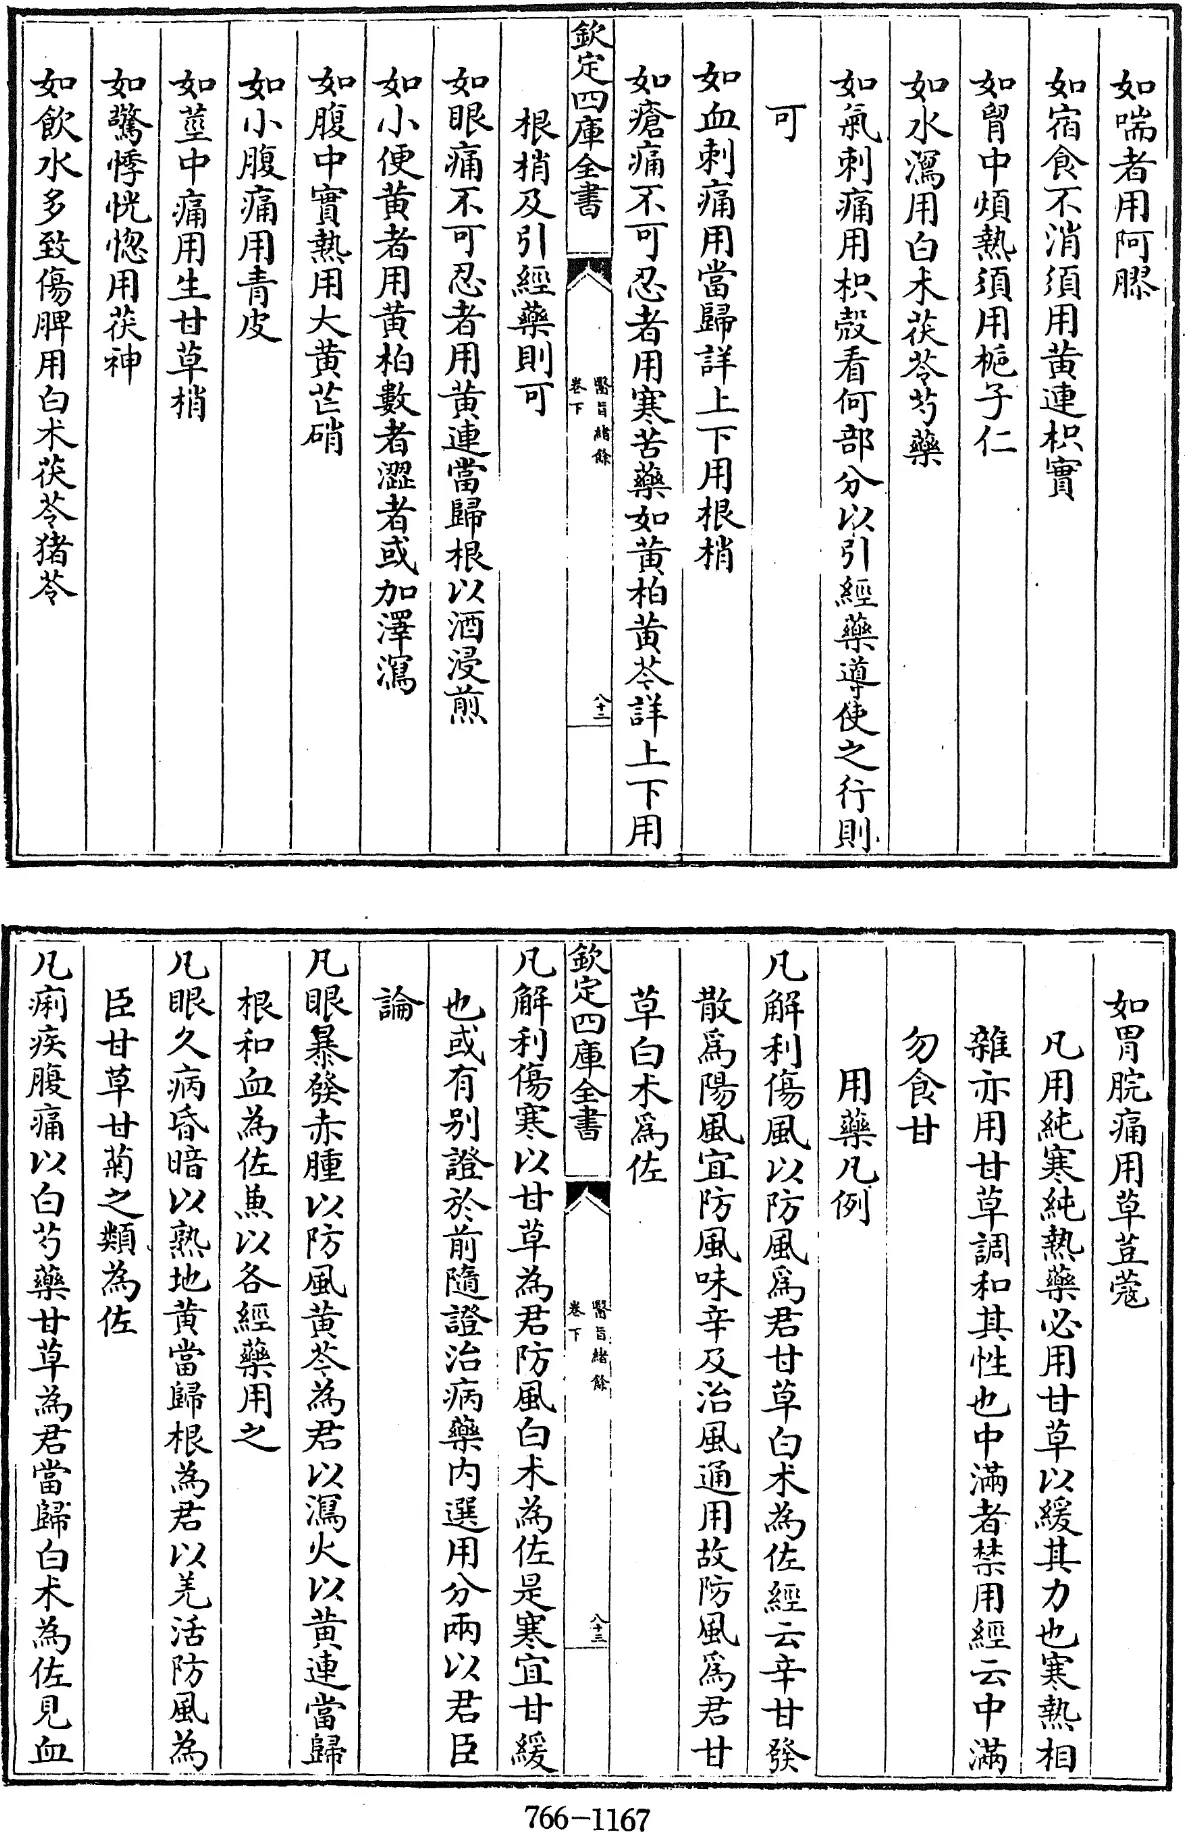 如喘者用阿膠
如宿食不消須用黄連枳實
如胷中煩熱須用梔子仁
如水瀉用白术茯苓芍藥
如氣刺痛用枳殼看何部分以引經藥導使之行則
可
如血刺痛用當歸詳上下用根梢
如瘡痛不可忍者用寒苦藥如黄柏黄芩詳上下用
欽定四庫全書
醫旨緒餘
卷下
八十二
根梢及引經藥則可
如眼痛不可忍者用黄連當歸根以酒浸煎
如小便黄者用黄柏數者澀者或加澤瀉
如腹中實熱用大黄芒硝
如小腹痛用青皮
如莖中痛用生甘草梢
如驚悸恍惚用茯神
如飲水多致傷脾用白术茯苓猪苓
如胃脘痛用草荳蔻
凡用純寒純熱藥必用甘草以緩其力也寒熱相
雜亦用甘草調和其性也中滿者禁用經云中滿
勿食甘
用藥凡例
凡解利傷風以防風爲君甘草白术為佐經云辛甘發
散爲陽風宜防風味辛及治風通用故防風爲君甘
草白术爲佐
欽定四庫全書
醫旨緒餘
卷下
八十三
凡解利傷寒以甘草為君防風白术為佐是寒宜甘緩
也或有别證於前隨證治病藥内選用分兩以君臣
論
凡眼暴發赤腫以防風黄芩為君以瀉火以黄連當歸
根和血為佐兼以各經藥用之
凡眼久病昏暗以熟地黄當歸根為君以羌活防風為
臣甘草甘菊之類為佐
凡痢疾腹痛以白芍藥甘草為君當歸白术為佐見血
766-1167